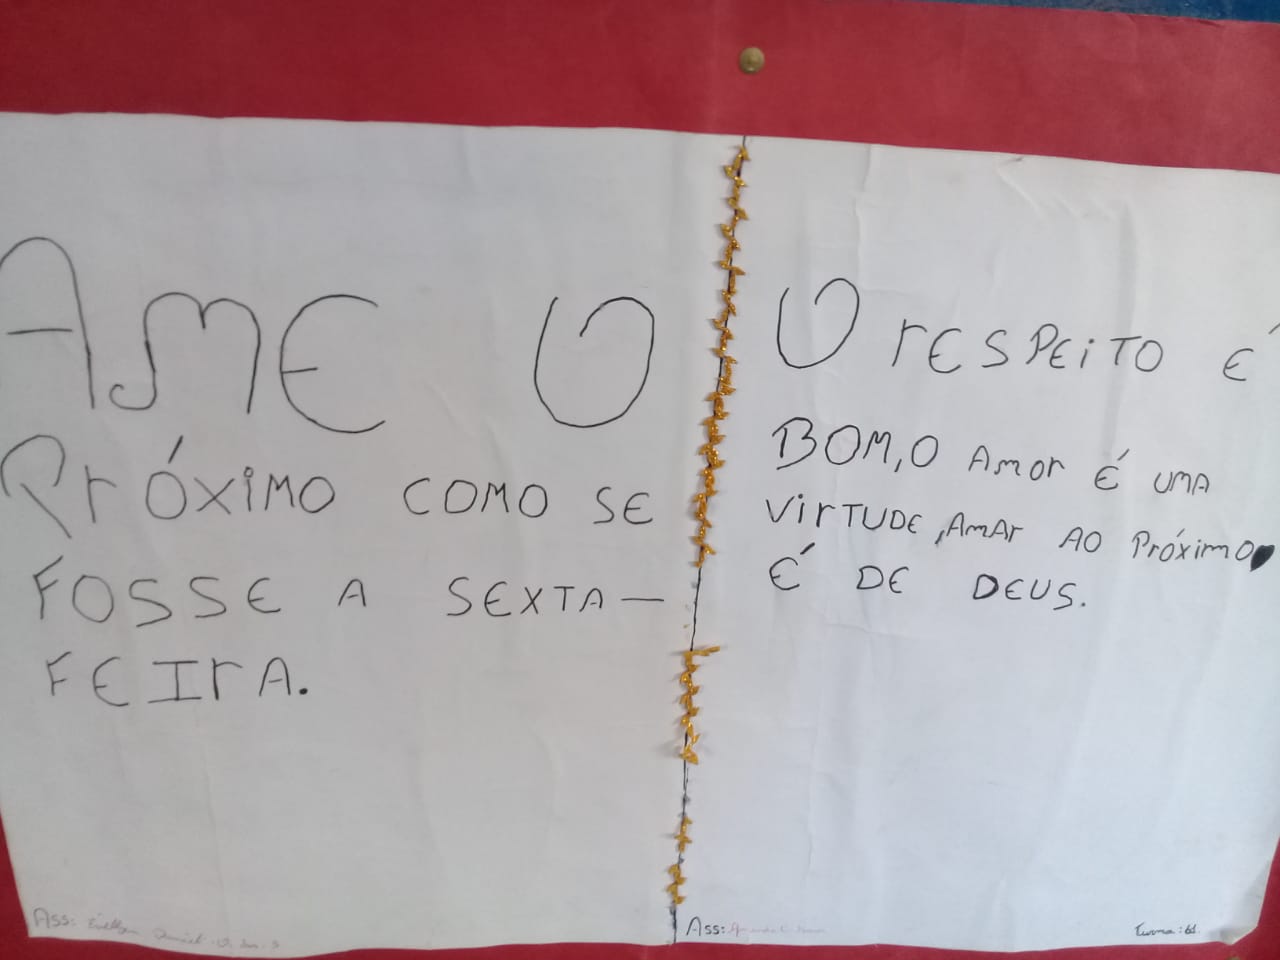 AME O
PróxiMO COMO SE
FOSSE A SEXTA-
FEIrA.
Ass:
O rESPEiTO É
BOM, O Amor É UMA
VirTUDE, AmAr AO Próximo
É DE DEUS.
Ass:
Turma: 61